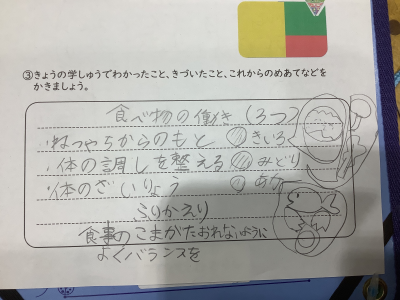 ③きょうの学しゅうでわかったこと、きづいたこと、これからのめあてなどを
かきましょう。
食べ物の働き(3つ)
ねつやちからのもと ◎きいろ
体の調しを整える ◎みどり
体のざいりょう ◎あか
ふりかえり
食事のこまがたおれないように
よくバランスを